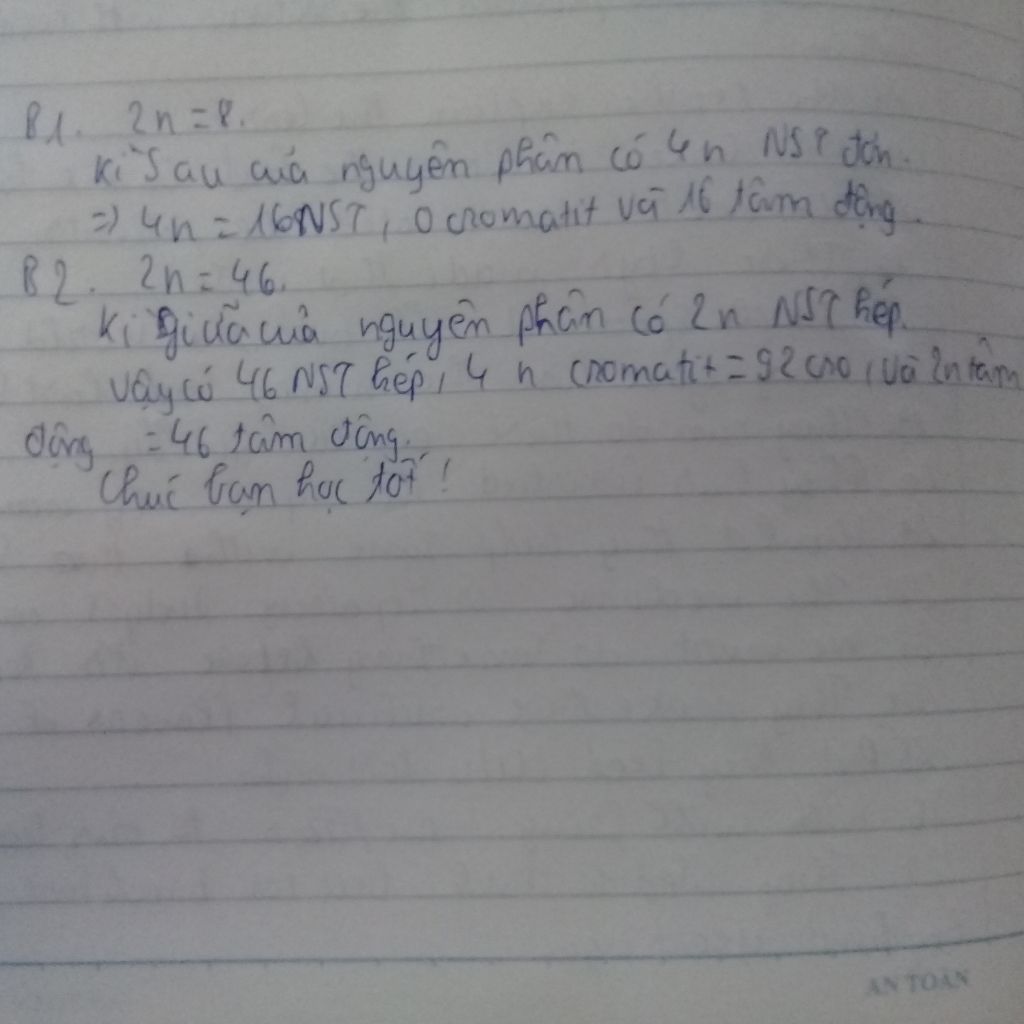 B1. 2n = 8.
Kì sau của nguyên phân có 4n NST đơn.
=> 4n = 16NST, 0 cromatit và 16 tâm động.
B2. 2n = 46.
Kì giữa của nguyên phân có 2n NST kép.
Vậy có 46 NST kép, 4 n cromatit = 92 cro, và 2n tâm
động = 46 tâm động.
Chúc bạn học tốt!
AN TOÀN